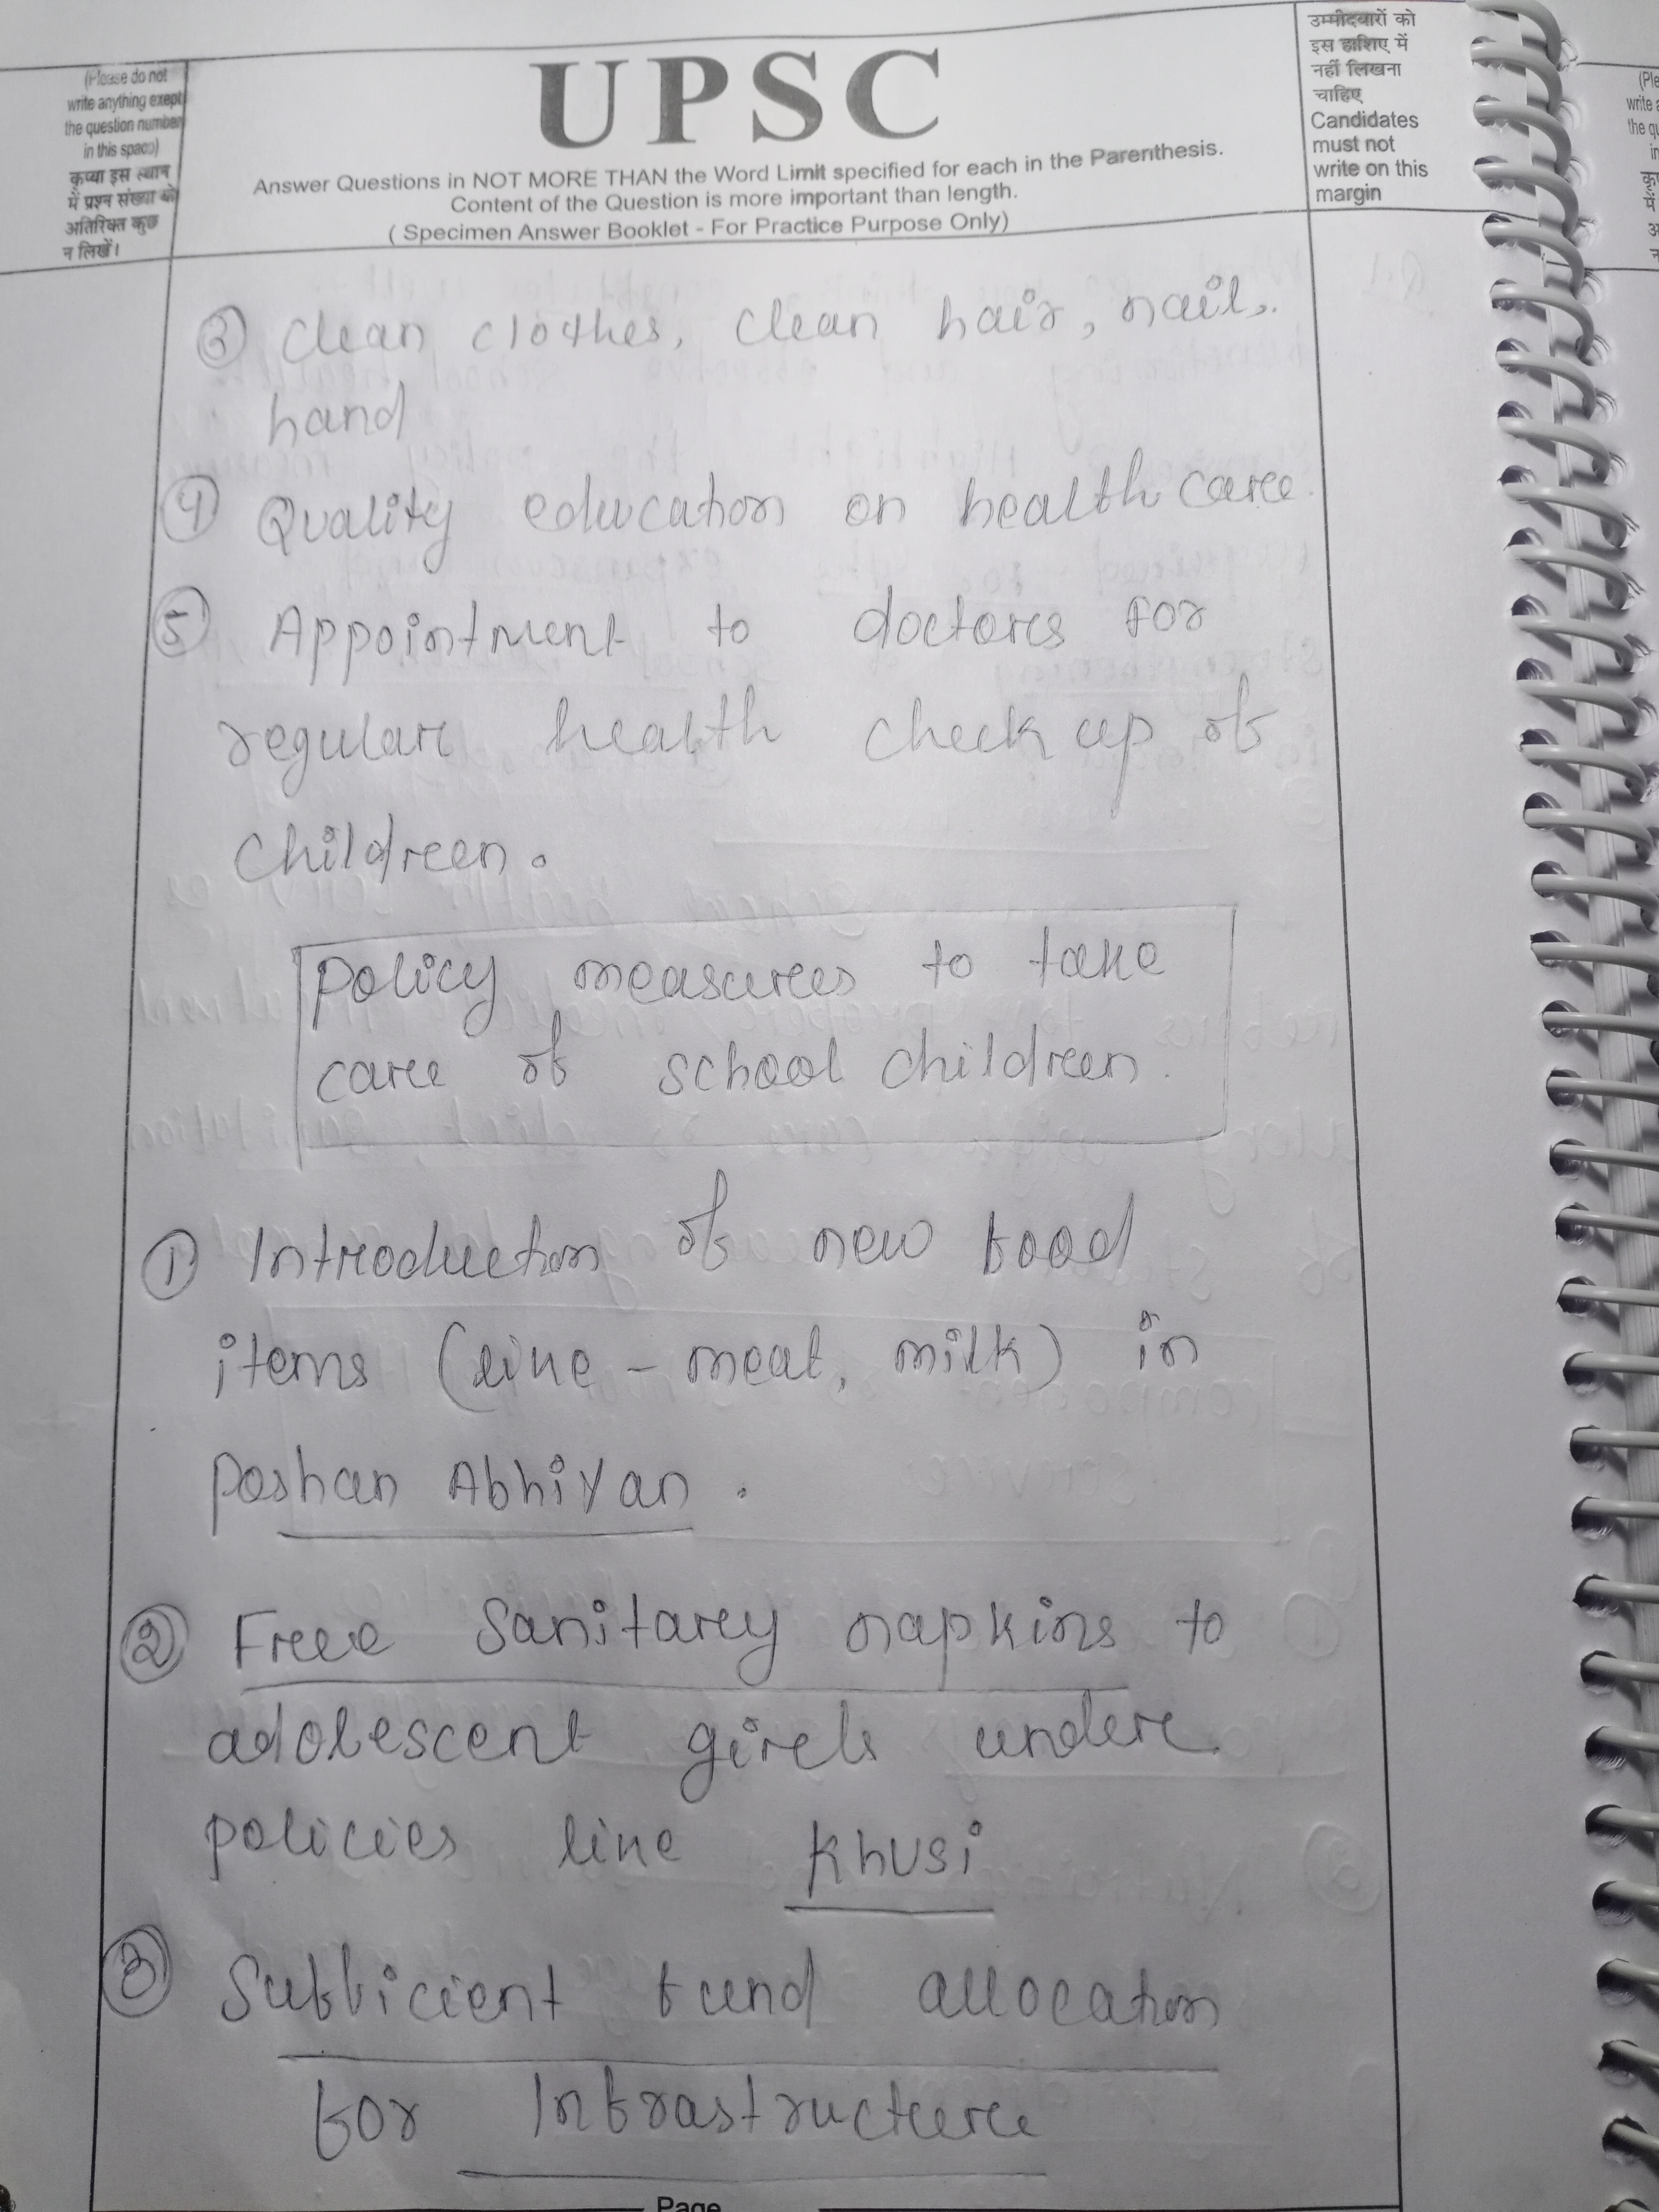 (Please do not
write anything exept
the question number
in this space)
कृप्या इस स्थान
में प्रश्न संख्या के
अतिरिक्त कुछ
न लिखें।
UPSC
Answer Questions in NOT MORE THAN the Word Limit specified for each in the Parenthesis.
Content of the Question is more important than length.
( Specimen Answer Booklet - For Practice Purpose Only)
उम्मीदवारों को
इस हाशिए में
नहीं लिखना
चाहिए
Candidates
must not
write on this
margin
③ Clean clothes, clean hair, nail,
hand
④ Quality education on healthcare.
⑤ Appointment to doctores for
regulare health check up of
childreen.
Policy measurees to take
caree of school childreen.
① Introduction of new food
items (like - meat, milk) in
Poshan Abhiyan.
② Freee Sanitarey napkins to
adolescent girels undere
policies like Khusi
③ Sufficient fund allocation
for Infrastructuree
Page